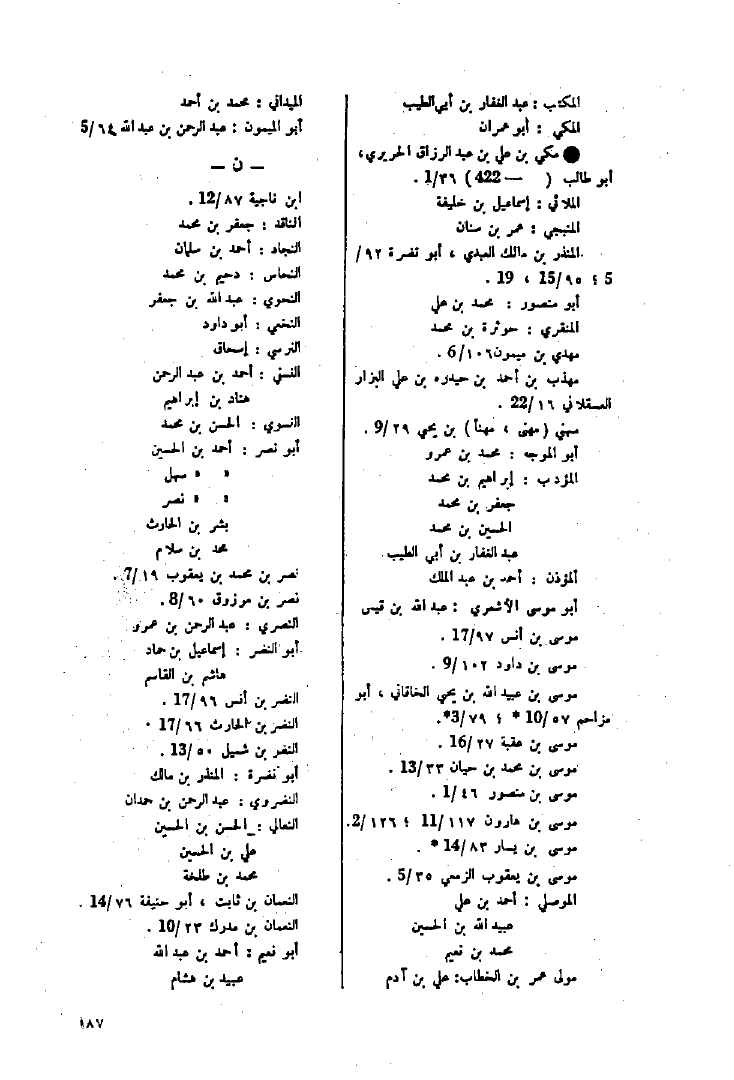 المكتب : عبد الغفار بن أبي الطيب
المكي : أبو عمران
● مكي بن علي بن عبد الرزاق الحريري،
أبو طالب ( — 422) 1/٣٦ .
الملائي : إسماعيل بن خليفة
المنبجي : عمر بن سنان
المنذر بن مالك العبدي ، أبو نضرة ٩٢/
5 ؛ 15/٩٥ ، 19 .
أبو منصور : محمد بن علي
المنقري : حوثرة بن محمد
مهدي بن ميمون 6/١٠٦ .
مهذب بن أحمد بن حيدره بن علي البزار
العسقلاني 22/١٦ .
مهني (مهنى ، مهنأ) بن يحي 9/٢٩ .
أبو الموجه : محمد بن عمرو
المؤدب : إبراهيم بن محمد
جعفر بن محمد
الحسين بن محمد
عبد الغفار بن أبي الطيب
المؤذن : أحمد بن عبد الملك
أبو موسى الأشعري : عبد الله بن قيس
موسى بن أنس 17/٩٧ .
موسى بن داود 9/١٠٢ .
موسى بن عبيد الله بن يحي الخاقاني ، أبو
مزاحم 10/٥٧ * ؛ 3/٧٩*.
موسى بن عقبة 16/٢٧ .
موسى بن محمد بن حيان 13/٣٣ .
موسى بن منصور 1/٤٦ .
موسى بن هارون 11/١١٧ ؛ 2/١٢٦.
موسى بن يسار 14/٨٣ * .
موسى بن يعقوب الزمعي 5/٣٥ .
الموصلي : أحمد بن علي
عبيد الله بن الحسين
محمد بن نعيم
مولى عمر بن الخطاب: علي بن آدم
الميداني : محمد بن أحمد
أبو الميمون : عبد الرحمن بن عبد الله 5/٦٤
– ن –
ابن ناجية 12/٨٧ .
الناقد : جعفر بن محمد
النجاد : أحمد بن سلمان
النحاس : دحيم بن محمد
النحوي : عبد الله بن جعفر
النخعي : أبو داود
النرسي : إسحاق
النسني : أحمد بن عبد الرحمن
هناد بن إبراهيم
النسوي : الحسن بن محمد
أبو نصر : أحمد بن الحسين
» » سهل
» » نصر
بشر بن الحارث
محمد بن سلام
نصر بن محمد بن يعقوب 7/١٩ .
نصر بن مرزوق 8/٦٠ .
النصري : عبد الرحمن بن عمرو
أبو النضر : إسماعيل بن حماد
هاشم بن القاسم
النضر بن أنس 17/٩٦ .
النضر بن الحارث 17/٦٦ .
النضر بن شميل 13/٥٠ .
أبو نضرة : المنذر بن مالك
النضروي : عبد الرحمن بن حمدان
النعالي : الحسن بن الحسين
علي بن الحسين
محمد بن طلحة
النعمان بن ثابت ، أبو حنيفة 14/٧٦ .
النعمان بن مدرك 10/٢٣ .
أبو نعيم : أحمد بن عبد الله
عبيد بن هشام
١٨٧